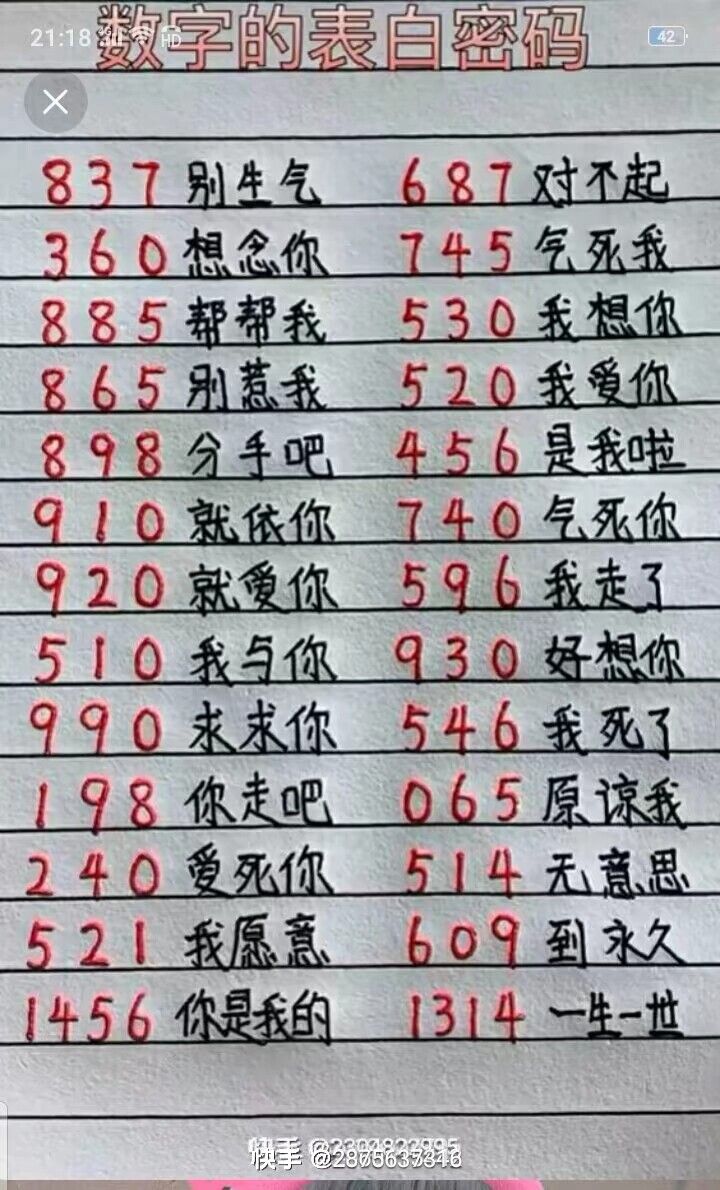 21:18 HD 42
数字的表白密码
837 别生气 687 对不起
360 想念你 745 气死我
885 帮帮我 530 我想你
865 别惹我 520 我爱你
898 分手吧 456 是我啦
910 就依你 740 气死你
920 就爱你 596 我走了
510 我与你 930 好想你
990 求求你 546 我死了
198 你走吧 065 原谅我
240 爱死你 514 无意思
521 我愿意 609 到永久
1456 你是我的 1314 一生一世
快手
快手